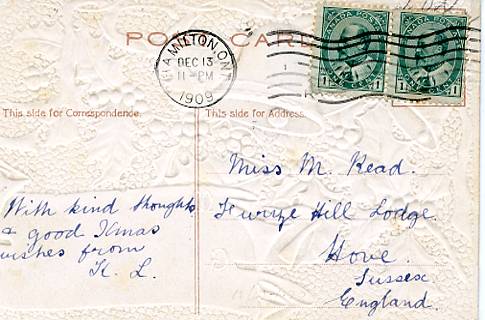 POST CARD
HAMILTON, ONT.
DEC 13
11-PM
1909
CANADA POSTAGE
1 1
CANADA POSTAGE
1 1
This side for Correspondence.
This side for Address.
With kind thoughts
& good Xmas
wishes from
K. L.
Miss M. Read.
Furze Hill Lodge.
Hove.
Sussex
England.